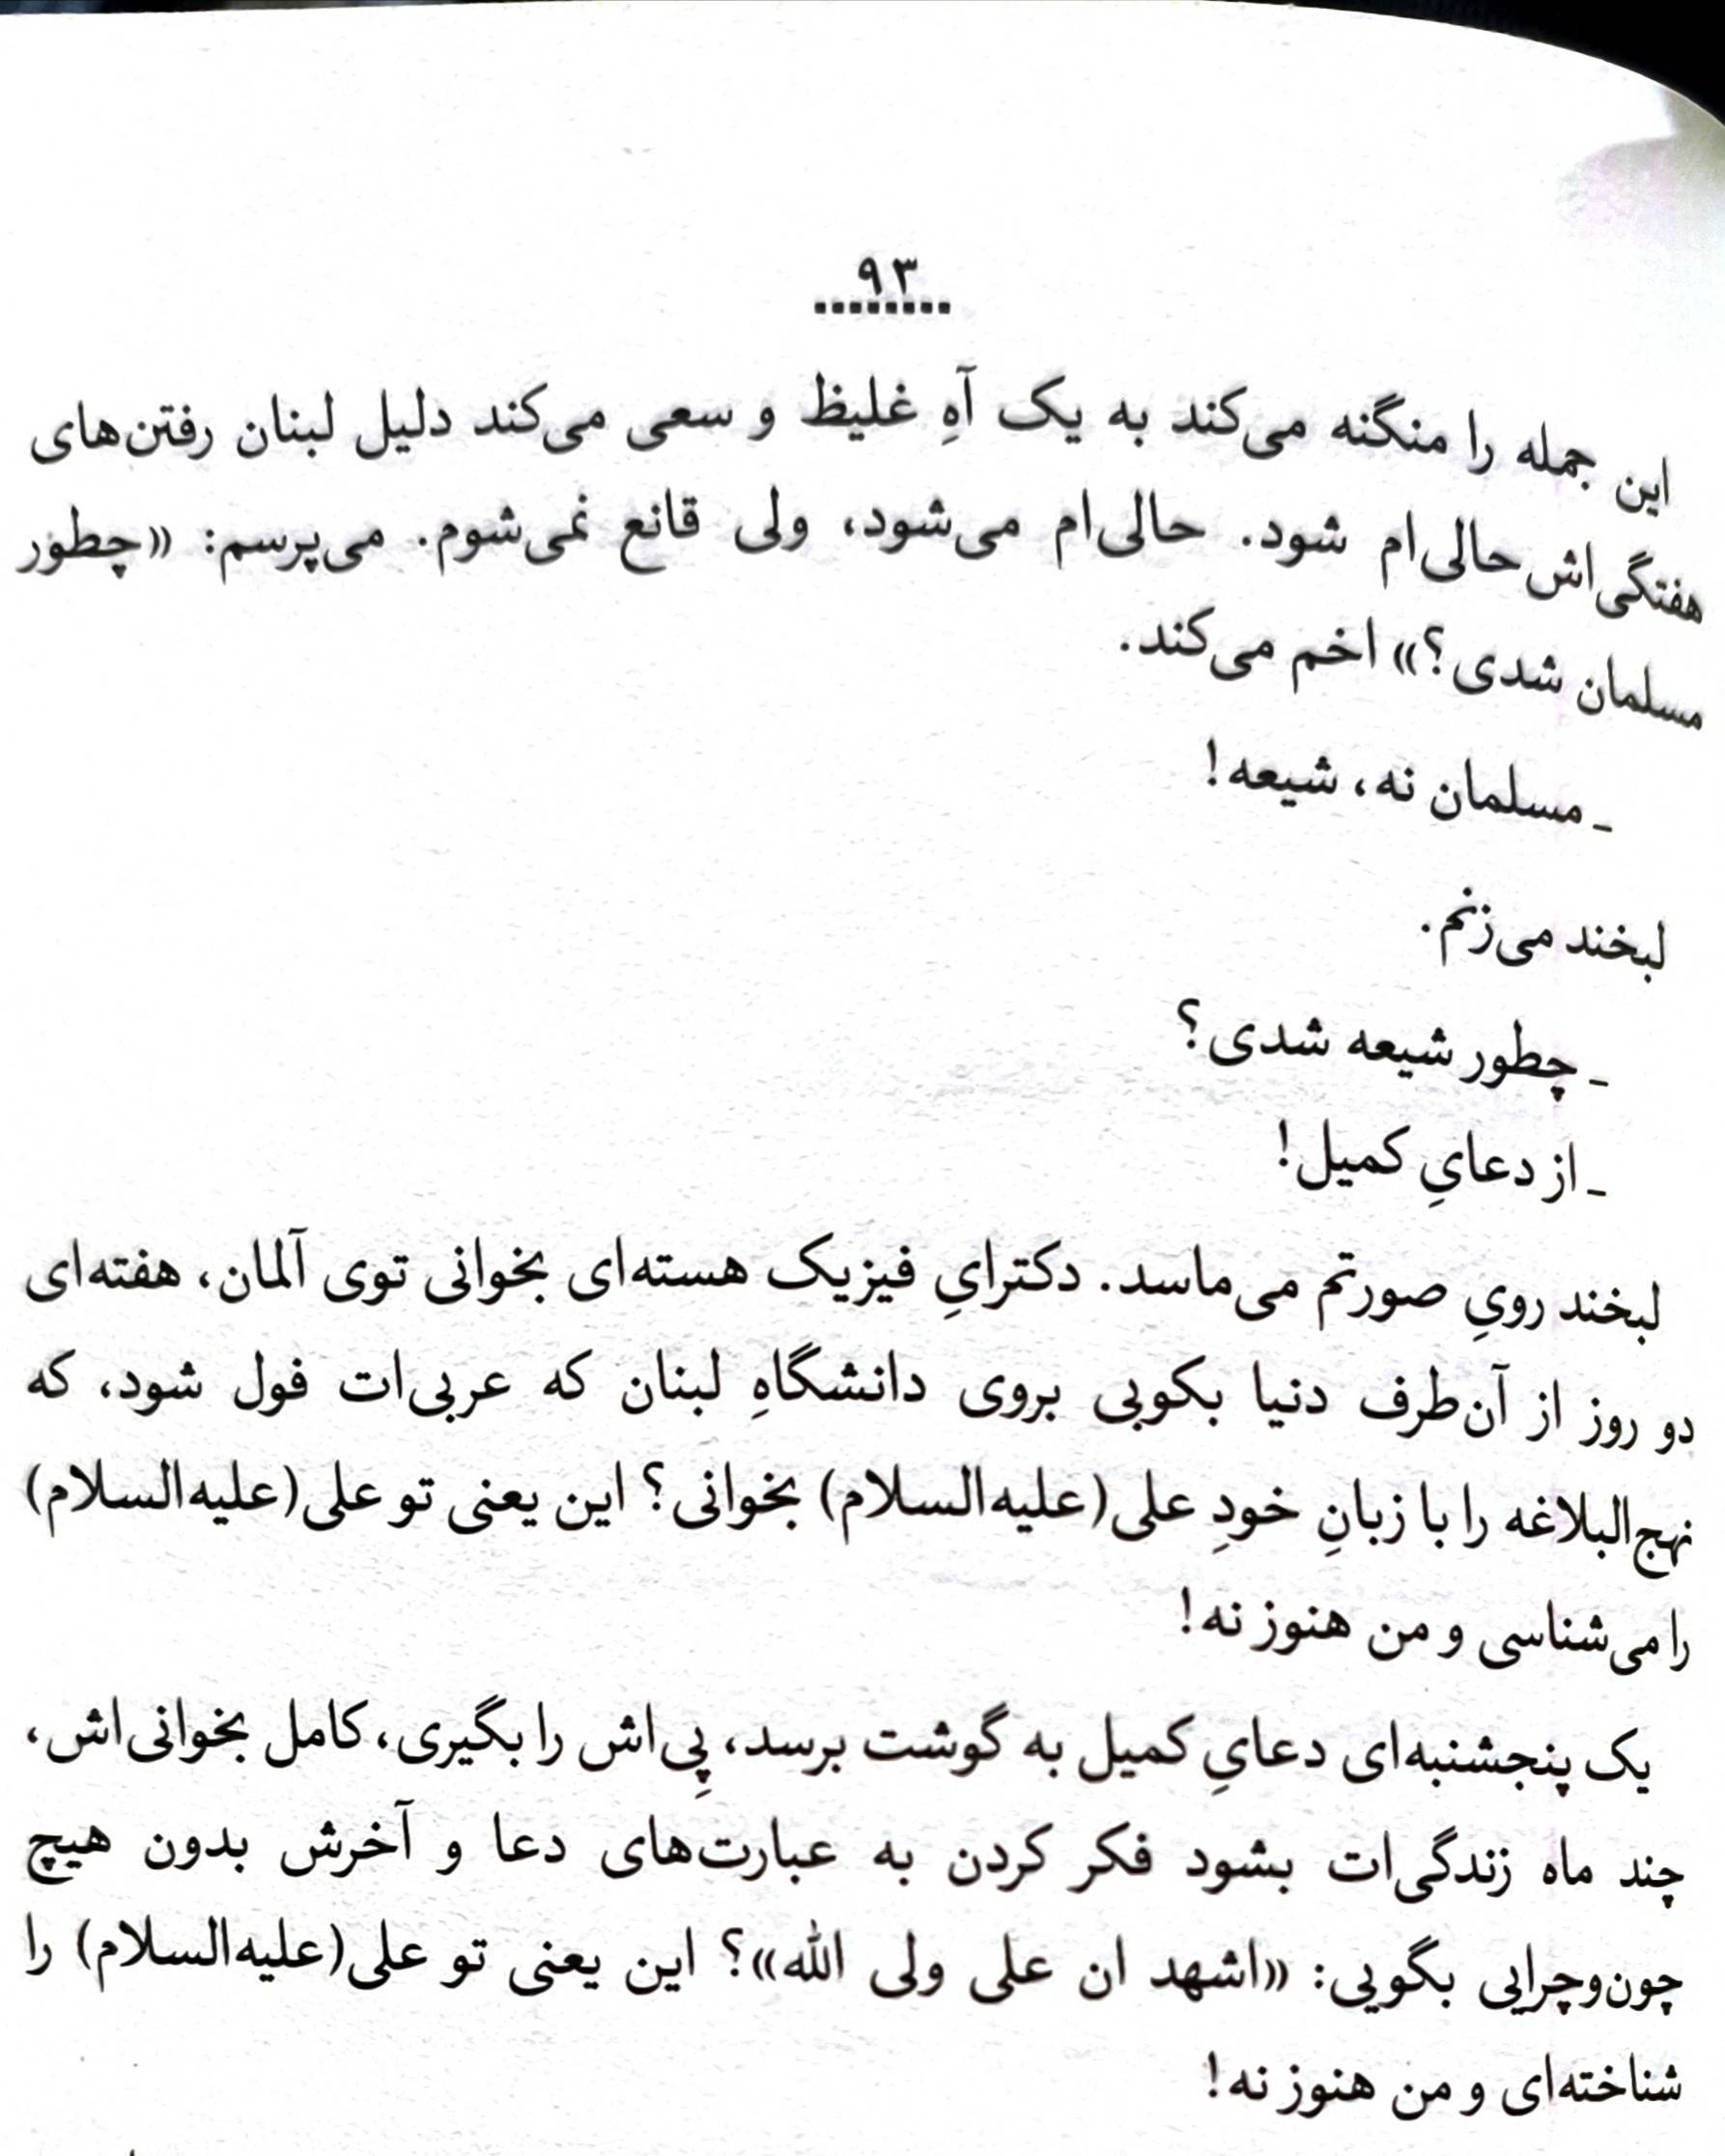 ۹۳
این جمله را منگنه می‌کند به یک آهِ غلیظ و سعی می‌کند دلیل لبنان رفتن‌های
هفتگی‌اش حالی‌ام شود. حالی‌ام می‌شود، ولی قانع نمی‌شوم. می‌پرسم: «چطور
مسلمان شدی؟» اخم می‌کند.
ـ مسلمان نه، شیعه!
لبخند می‌زنم.
ـ چطور شیعه شدی؟
ـ از دعایِ کمیل!
لبخند رویِ صورتم می‌ماسد. دکترایِ فیزیک هسته‌ای بخوانی توی آلمان، هفته‌ای
دو روز از آن‌طرف دنیا بکوبی بروی دانشگاهِ لبنان که عربی‌ات فول شود، که
نهج‌البلاغه را با زبانِ خودِ علی(علیه‌السلام) بخوانی؟ این یعنی تو علی(علیه‌السلام)
را می‌شناسی و من هنوز نه!
یک پنجشنبه‌ای دعایِ کمیل به گوشت برسد، پِی‌اش را بگیری، کامل بخوانی‌اش،
چند ماه زندگی‌ات بشود فکر کردن به عبارت‌های دعا و آخرش بدون هیچ
چون‌وچرایی بگویی: «اشهد ان علی ولی الله»؟ این یعنی تو علی(علیه‌السلام) را
شناخته‌ای و من هنوز نه!